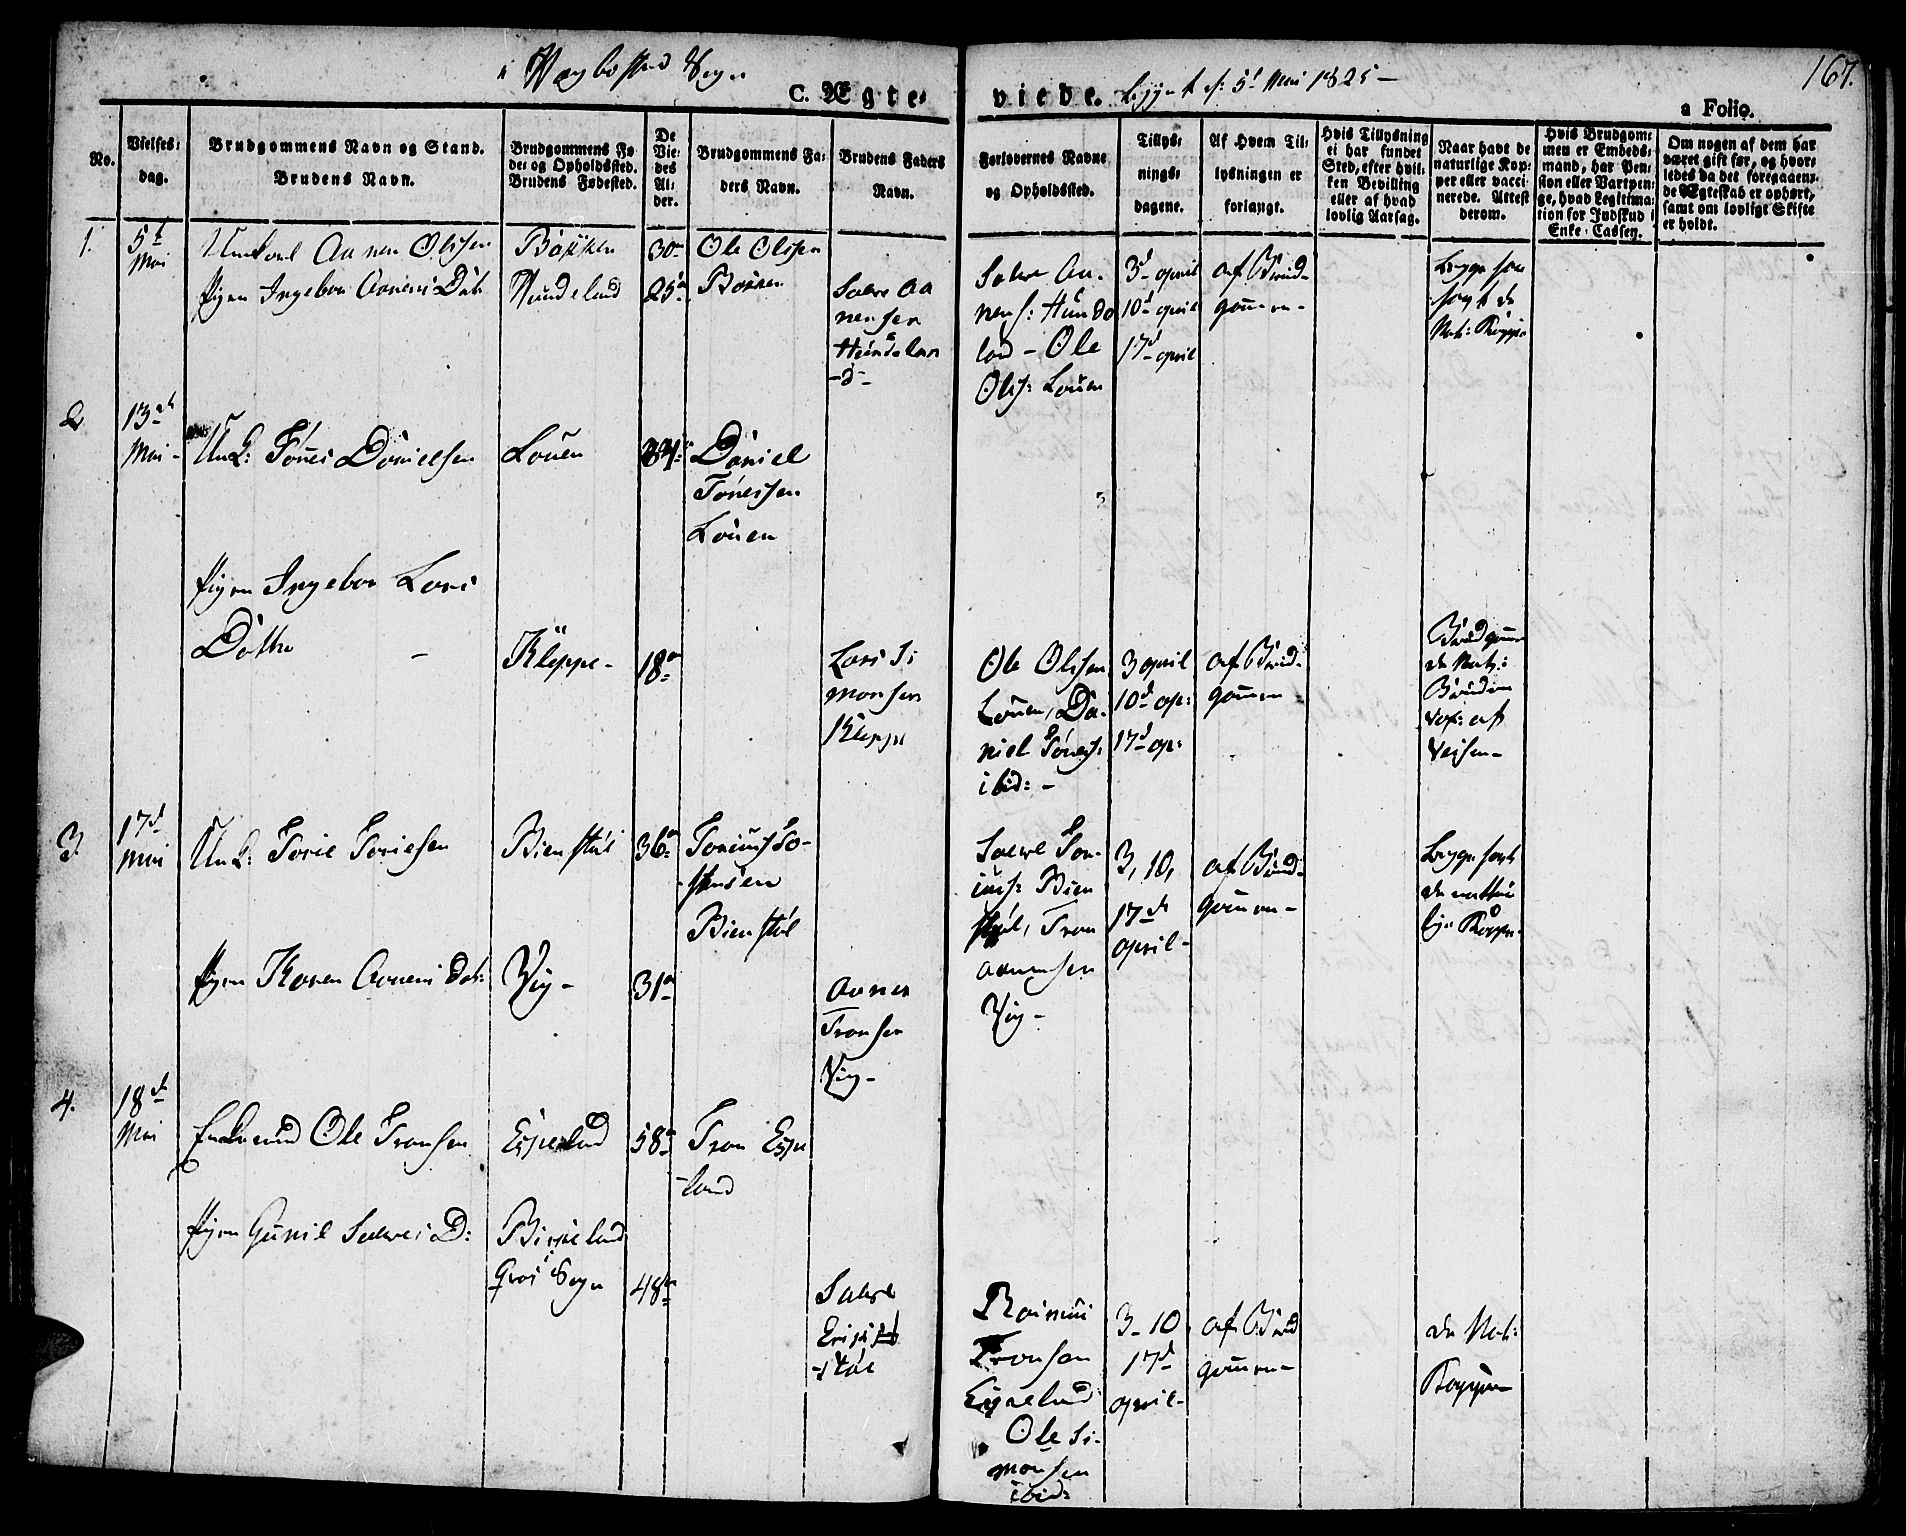 i Vægbosted Sogn
C. Ægte-
viede. begynt d: 5t Mai 1825 -
167.
a Folio.
No.
Vielses-
dag.
Brudgommens Navn og Stand.
Brudens Navn.
Brudgommens Fø-
de- og Opholdssted.
Brudens Fødested.
De
Vie-
des
Al-
der.
Brudgommens Fa-
ders Navn.
Brudens Faders
Navn.
Forlovernes Navne
og Opholdssted.
Tillys-
nings-
dagene.
Af Hvem Til-
lysningen er
forlangt.
Hvis Tillysning
ei har fundet
Sted, efter hvil-
ken Bevilling
eller af hvad
lovlig Aarsag.
Naar havt de
naturlige Kop-
per eller vacci-
nerede. Attest
derom.
Hvis Brudgom-
men er Embeds-
mand, har Pen-
sion eller Vartpen-
ge, hvad Legitima-
tion for Indskud i
Enke-Cassen.
Om nogen af dem har
været gift før, og hvor-
ledes da det foregaaen-
de Ægteskab er ophørt,
samt om lovligt Skifte
er holdt.
1.
5t
Mai
Unkarl Aanen Olssen
Pigen Ingebor Aanens Dat
Hundeland
30
25
Ole Olssen
Salve Aa
nensen
Hundelan
-d-
Salve Aa-
nens: Hunde
land - Ole
Ols: Louen
3d april
10d april
17d april
af Brud-
gommen-
Begge har
havt de
Nat: Kopper
2
13de
Mai -
UnK: Tønes Danielsen
Louen
Daniel
Tønessen
Louen
Pigen Ingebor Lars
Datter -
Kleppe-
18
Lars Si
monsen
Kleppe
Ole Olssen
Louen, Da-
niel Tøness:
ibid: -
3 april
10d ap:
17d ap:
af Brud-
gommen
Brudgomm
de Nat:
Bruden
Vax: att
Veisen-
3.
17d
Mai
UnK: Torie Toriesen
Bienstøl
36
Bienstøl
Pigen Karen Aanens Dat:
Vig-
31
Aanen
Tronsen
Vig-
Salve Tor-
ius: Bien
støl, Tron
Aanensen
Vig-
3, 10,
17de
april-
af Brud-
gommen-
Begge havt
de nattur
lige Kopper-
4.
18de
Mai
Enkemand Ole Tronsen
Espeland
58
Tron Espe
-land
Pigen Gunil Salves D:
Birkeland
Qvas Sogn
48
Salve
-støl
Rasmus
Tronsen
Espeland
Ole Si-
monsen
ibid:
3- 10
17d
april-
af Brud
gommen-
de Nat:
Kopper-